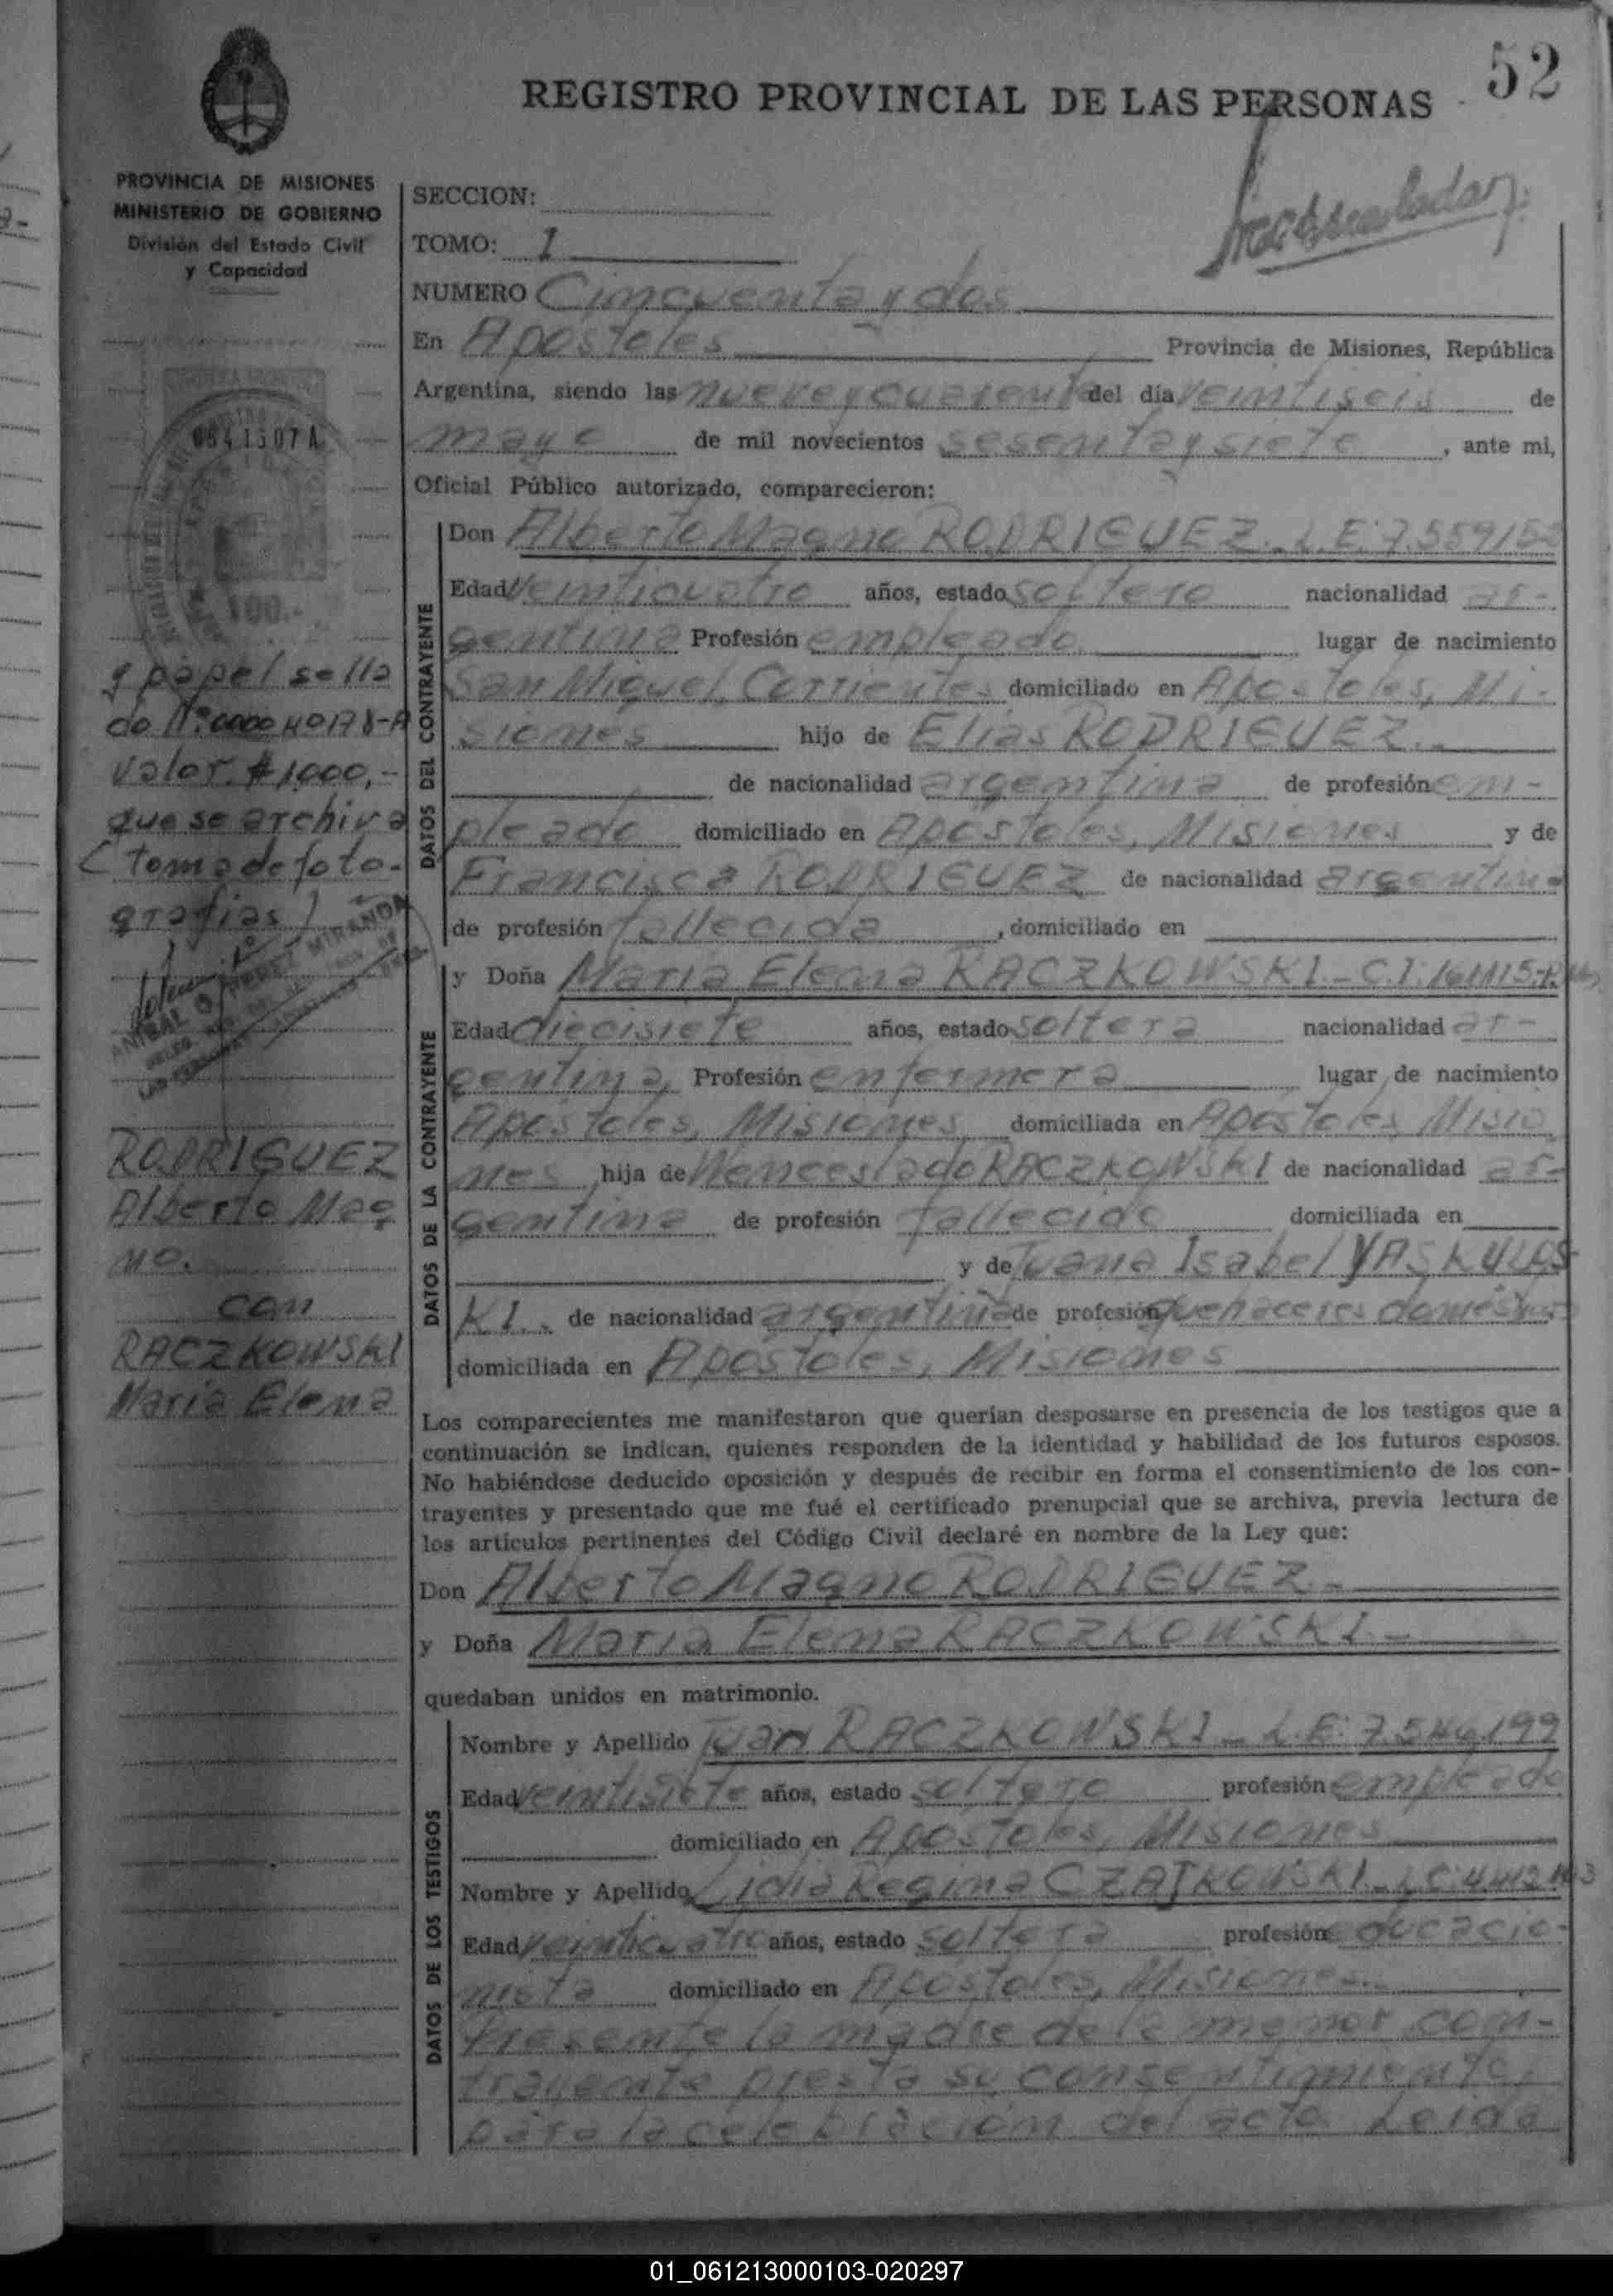 52
REGISTRO PROVINCIAL DE LAS PERSONAS
PROVINCIA DE MISIONES
MINISTERIO DE GOBIERNO
División del Estado Civil
y Capacidad
SECCION:
TOMO: 1
NUMERO Cincuenta y dos
En Apóstoles Provincia de Misiones, República
Argentina, siendo las nueve y cuarenta del día veintiseis de
mayo de mil novecientos sesenta y siete, ante mi,
Oficial Público autorizado, comparecieron:
DATOS DEL CONTRAYENTE
Don Alberto Magno RODRIGUEZ.- L.E: 7.559152
Edad veinticuatro años, estado soltero nacionalidad ar-
gentina Profesión empleado lugar de nacimiento
San Miguel, Corrientes domiciliado en Apóstoles, Mi-
siones hijo de Elias RODRIGUEZ.-
de nacionalidad argentina de profesión em-
pleado domiciliado en Apóstoles, Misiones y de
Francisca RODRIGUEZ de nacionalidad argentina
de profesión fallecida, domiciliado en
DATOS DE LA CONTRAYENTE
y Doña Maria Elena RACZKOWSKI.- C.I: 161115-P.
Edad diecisiete años, estado soltera nacionalidad ar-
gentina, Profesión enfermera lugar de nacimiento
Apóstoles, Misiones, domiciliada en Apóstoles, Misio
nes hija de Wenceslado RACZKOWSKI de nacionalidad ar-
gentina de profesión fallecido domiciliada en
y de Juana Isabel YASKULES
KI.. de nacionalidad argentina de profesión quehaceres domésticos
domiciliada en Apóstoles, Misiones
Los comparecientes me manifestaron que querían desposarse en presencia de los testigos que a
continuación se indican, quienes responden de la identidad y habilidad de los futuros esposos.
No habiéndose deducido oposición y después de recibir en forma el consentimiento de los con-
trayentes y presentado que me fué el certificado prenupcial que se archiva, previa lectura de
los artículos pertinentes del Código Civil declaré en nombre de la Ley que:
Don Alberto Magno RODRIGUEZ.-
y Doña Maria Elena RACZKOWSKI.-
quedaban unidos en matrimonio.
DATOS DE LOS TESTIGOS
Nombre y Apellido Juan RACZKOWSKI.- L.E: 7.546,199
Edad veintisiete años, estado soltero profesión empleado
domiciliado en Apóstoles, Misiones
Nombre y Apellido Lidia Regina CZAJKOWSKI.- L.C:
Edad veinticuatro años, estado soltera profesión educacio-
nista domiciliado en Apóstoles, Misiones.-
Presente la madre de la menor con-
trayente presta su consentimiento
para la celebración del acto. Leida
100.-
y papel sella
do N°: 000040178-A
valor $ 1000,-
que se archiva
(toma de foto-
grafias)
RODRIGUEZ
Alberto Mag
no.
con
RACZKOWSKI
Maria Elena
01_061213000103-020297